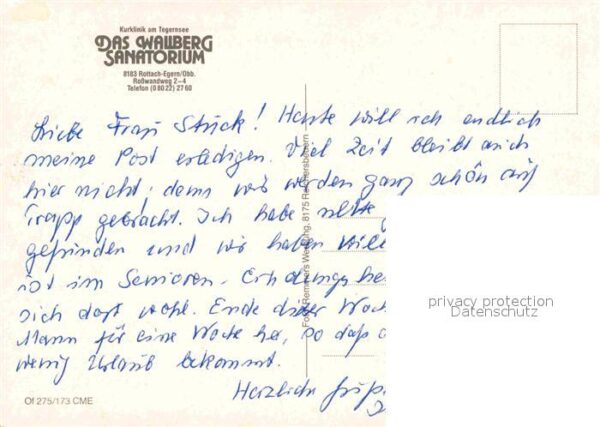 Kurklinik am Tegernsee
DAS WALLBERG
SANATORIUM
8183 Rottach-Egern/Obb.
Roßwandweg 2–4
Telefon (0 80 22) 27 60
Liebe Frau Stuck! Heute will ich endlich
meine Post erledigen. Viel Zeit bleibt mir
hier nicht, denn wir werden ganz schön auf
Trapp gebracht. Ich habe nette
gefunden und wir haben viel
ist im Senioren-Erholungshe
sich dort wohl. Ende dieser Woch
Mann für eine Woche her, so daß
wenig Urlaub bekommt.
Herzliche Grüße
Foto: Remmer's Werbung, 8175 Reichersbeuern
Of 275/173 CME
privacy protection
Datenschutz